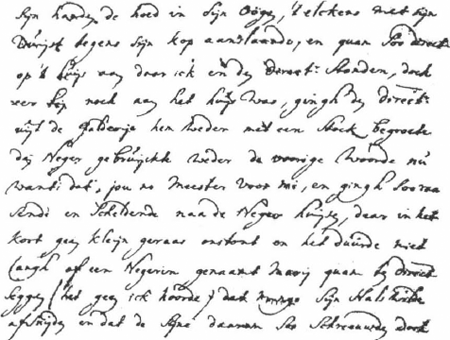 sijn handen de hoed in sijn oogen, 't elckens met sijn
vuijst tegens sijn kop aanslaande, en quam soo direct
op 't huijs aan daar ick en de Direct: stonden, doch
eer hij noch aan het huijs was, gingh de Direct:
uijt de galderije hem weder met een stock begroete
de Neger gebruijckte weder de voorige woorde nú
wanti dati, jou no meester voor mi, en gingh soo raa
sende en scheldende na de Neger huijse, daar in het
kort geen kleijn geraas onstont en het duurde niet
langh of een Negerin genaamt Marij quam bij Direct
seggen (het geen ick hoorde) dat sijn hals wilde
afsnijden en dat de sijne daarom soo schreeuwde doch